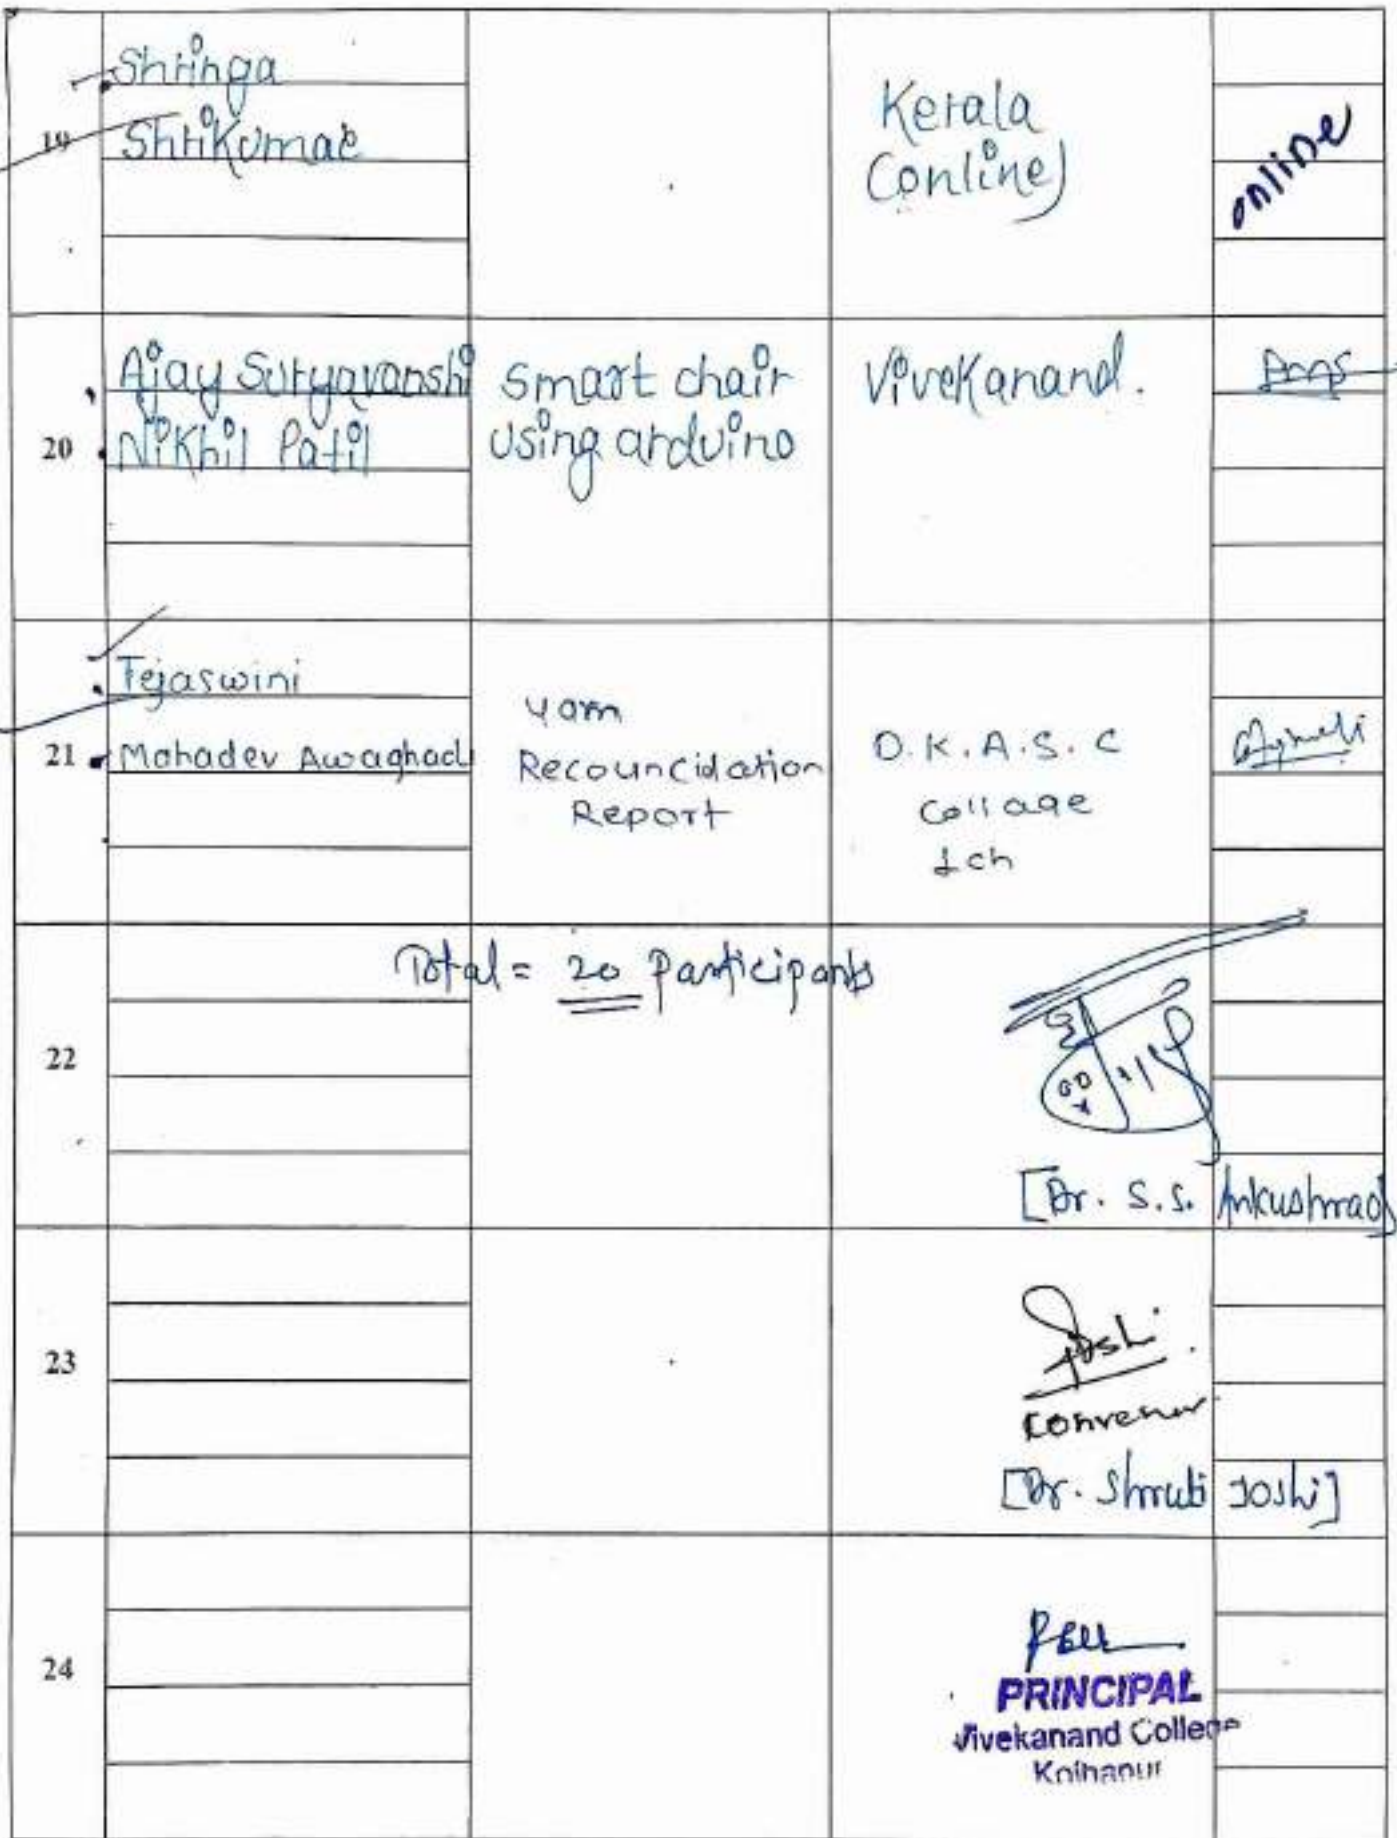 19
Shringa
Shrikumar
Kerala
(online)
online
20
Ajay Suryavanshi
Nikhil Patil
Smart chair
using arduino
Vivekanand.
21
Tejaswini
Mahadev Awaghad
yarn
Recouncidation
Report
D.K.A.S.C
Collage
Ich
Total = 20 Participants
22
[Dr. S.S. Ankushrao]
23
Joshi
Convenor
[Dr. Shruti Joshi]
24
PRINCIPAL
Vivekanand College
Kolhapur